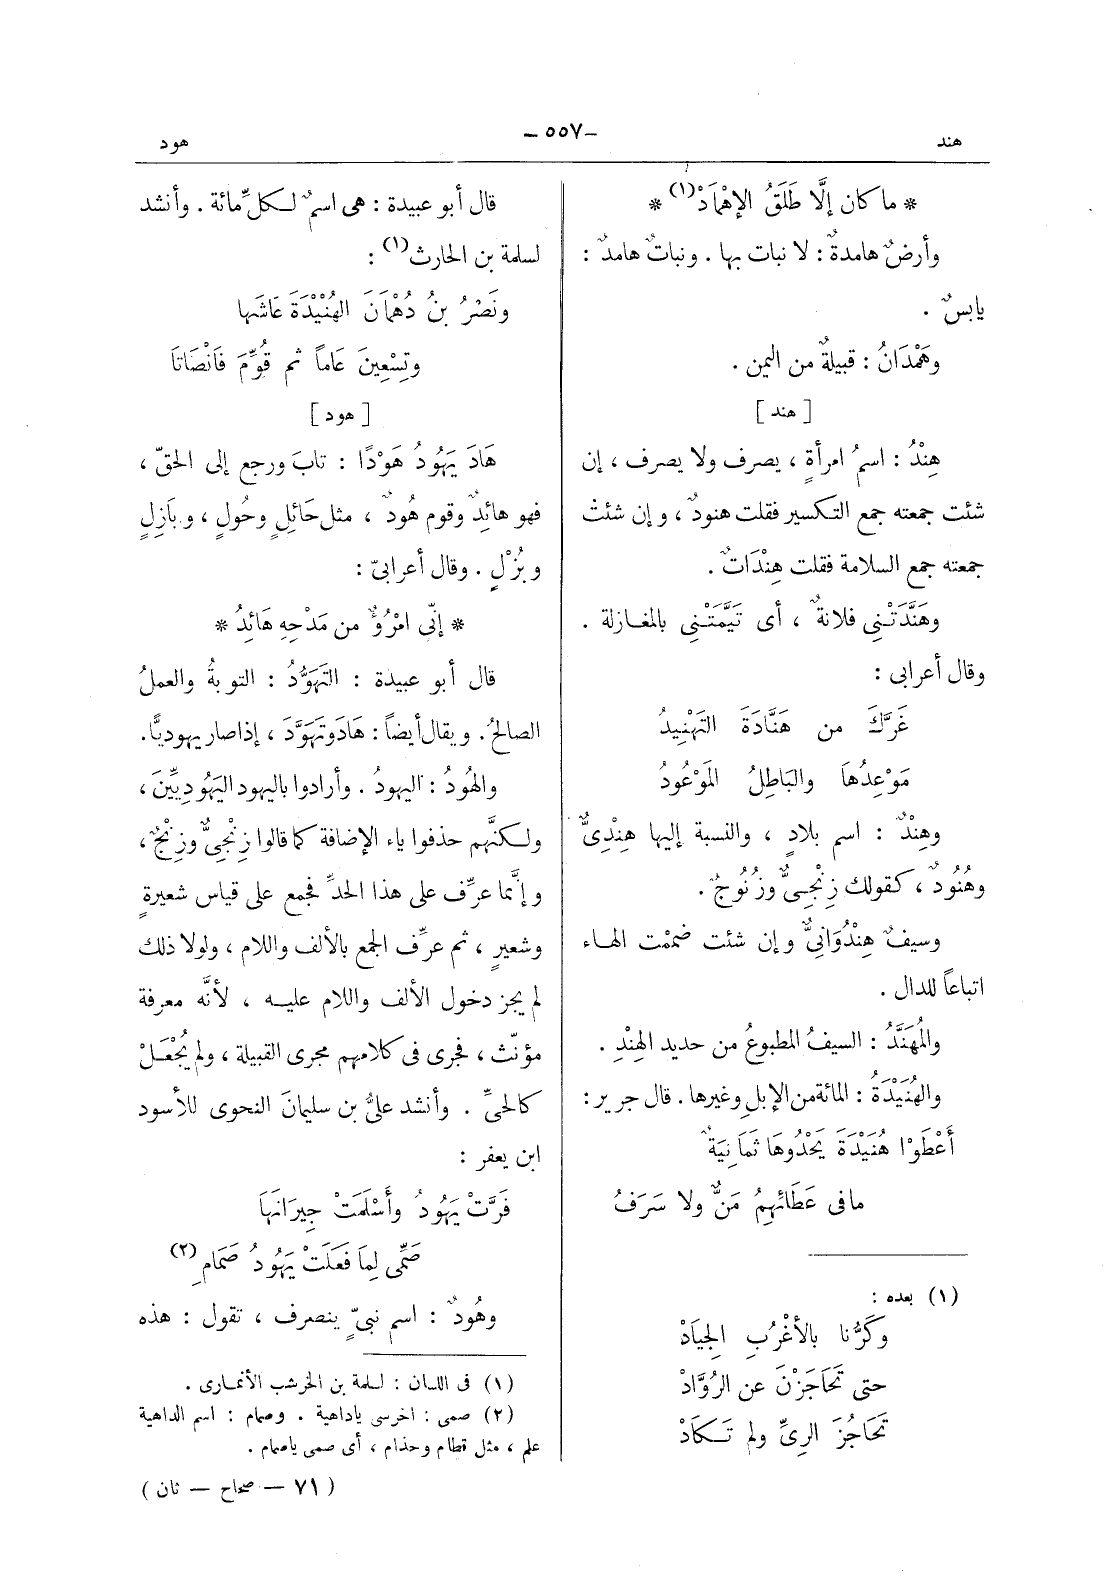 هند
— ٥٥٧ —
هود
* ما كان إلَّا طَلَقُ الإهْمَادْ (١) *
وأرضٌ هامدةٌ : لا نبات بها . ونباتٌ هامدٌ :
يابسٌ .
وهَمْدَانُ : قبيلةٌ من اليمن .
[ هند ]
هِنْدُ : اسمُ امرأةٍ ، يصرف ولا يصرف ، إن
شئت جمعته جمع التكسير فقلت هنودٌ ، و إن شئتَ
جمعته جمع السلامة فقلت هِنْدَاتٌ .
وهَنَّدَتْنِي فلانةٌ ، أى تَيَّمَتْنِي بالمغازلة .
وقال أعرابى :
غَرَّكَ من هَنَّادَةَ التَهْنِيدُ
مَوْعِدُهَا والبَاطِلُ المَوْعُودُ
وهِنْدٌ : اسم بلادٍ ، والنسبة إليها هِنْدِىٌّ
وهُنُودٌ ، كقولك زِنْجِىٌّ وزُنُوجٌ .
وسيفٌ هِنْدُوَانِىٌّ و إن شئت ضممْت الهاء
اتباعاً للدال .
والمُهَنَّدُ : السيفُ المطبوعُ من حديد الهِنْدِ .
والهُنَيْدَةُ : المائة من الإبلِ وغيرها . قال جرير :
أَعْطَوْا هُنَيْدَةَ يَحْدُوهَا ثَمَانِيَةٌ
مافى عَطَائِهِمُ مَنٌّ ولا سَرَفُ
(١) بعده :
وكَرُّنا بالأَغْرُبِ الجِيَادْ
حتى تَحَاجَزْنَ عن الرُوَّادْ
تَحَاجُزَ الرِىِّ ولم تَكَادْ
قال أبو عبيدة : هى اسمٌ لكلِّ مائة . وأنشد
لسلمة بن الحارث (١) :
ونَصْرُ بنُ دُهْمَانَ الهُنَيْدَةَ عَاشَها
وتِسْعِينَ عَاماً ثم قُوِّمَ فَانْصَاتَا
[ هود ]
هَادَ يَهُودُ هَوْدًا : تابَ ورجع إلى الحقّ ،
فهو هائِدٌ وقوم هُودٌ ، مثل حَائِلٍ وحُولٍ ، و بَازِلٍ
و بُزْلٍ . وقال أعرابىّ :
* إنّى امْرُؤٌ من مَدْحِهِ هَائِدُ *
قال أبو عبيدة : التَهَوُّدُ : التوبةُ والعملُ
الصالحُ . ويقال أيضاً : هَادَ وتَهَوَّدَ ، إذا صار يهوديًّا .
والهُودُ : اليهودُ . وأرادوا باليهود اليَهُودِيِّينَ ،
ولكنَّهم حذفوا ياء الإضافة كما قالوا زِنْجِىٌّ وزِنْجٌ ،
و إنَّما عرِّف على هذا الحدِّ فجمع على قياس شعيرةٍ
وشعيرٍ ، ثم عرِّف الجمع بالألف واللام ، ولولا ذلك
لم يجز دخول الألف واللام عليه ، لأنَّه معرفة
مؤنّث ، فجرى فى كلامهم مجرى القبيلة ، ولم يُجْعَلْ
كالحىِّ . وأنشد علىُّ بن سليمانَ النحوى للأسود
ابن يعفر :
فَرَّتْ يَهُودُ وأَسْلَمَتْ جِيرَانَهَا
صَمِّى لِمَا فَعَلَتْ يَهُودُ صَمَامِ (٢)
وهُودٌ : اسم نبىّ ٍ ينصرف ، تقول : هذه
(١) فى اللسان : لسلمة بن الخرشب الأنمارى .
(٢) صمى : اخرسى ياداهية . وصمام : اسم الداهية
علم ، مثل قطام وحذام ، أى صمى ياصمام .
( ٧١ — صحاح — ثان )